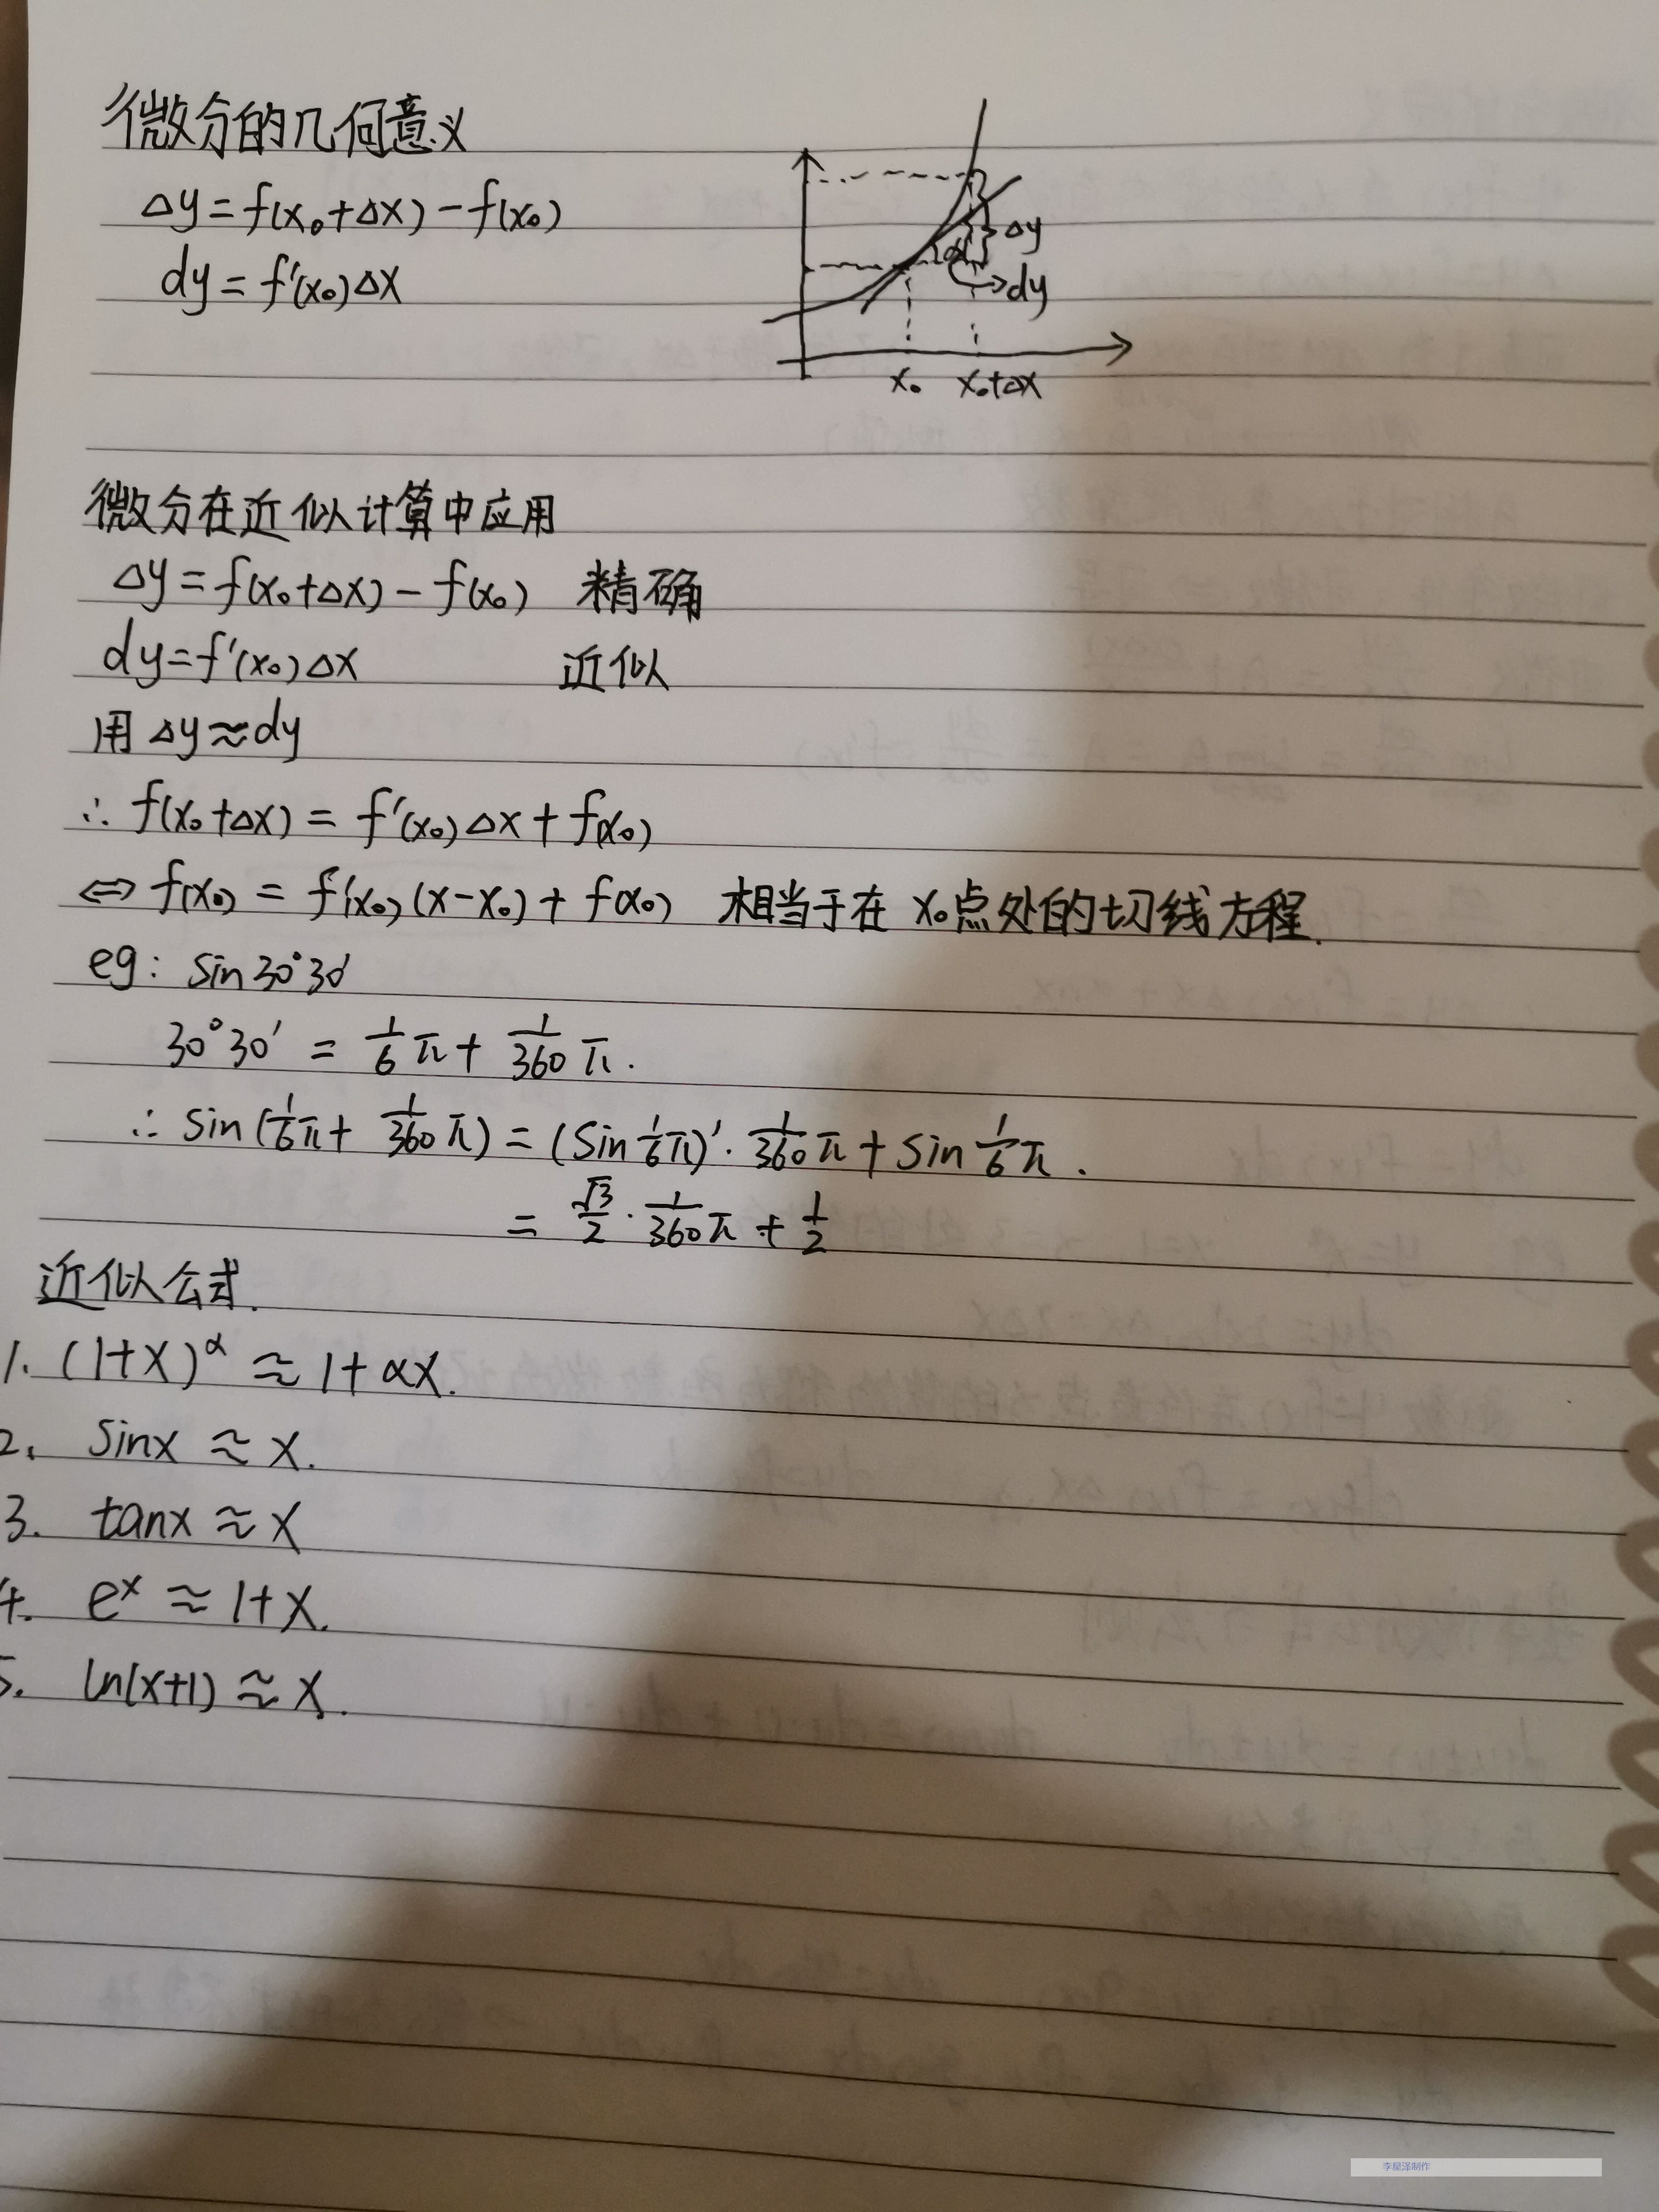 微分的几何意义
Δy=f(x₀+Δx)-f(x₀)
dy=f'(x₀)Δx
Δy
α
dy
x₀ x₀+Δx
微分在近似计算中应用
Δy=f(x₀+Δx)-f(x₀) 精确
dy=f'(x₀)Δx 近似
用 Δy≈dy
∴ f(x₀+Δx) = f'(x₀)Δx+f(x₀)
⇔ f(x₀) = f'(x₀)(x-x₀)+f(x₀) 相当于在 x₀点处的切线方程.
eg: sin30°30'
30°30' = 1/6 π + 1/360 π.
∴ sin(1/6π + 1/360 π) = (sin 1/6π)'· 1/360 π + sin 1/6 π.
= √3/2 · 1/360 π + 1/2
近似公式.
1. (1+x)^α ≈ 1+αx.
2. sinx ≈ x.
3. tanx ≈ x
4. e^x ≈ 1+x.
5. ln(x+1) ≈ x.
李星泽制作